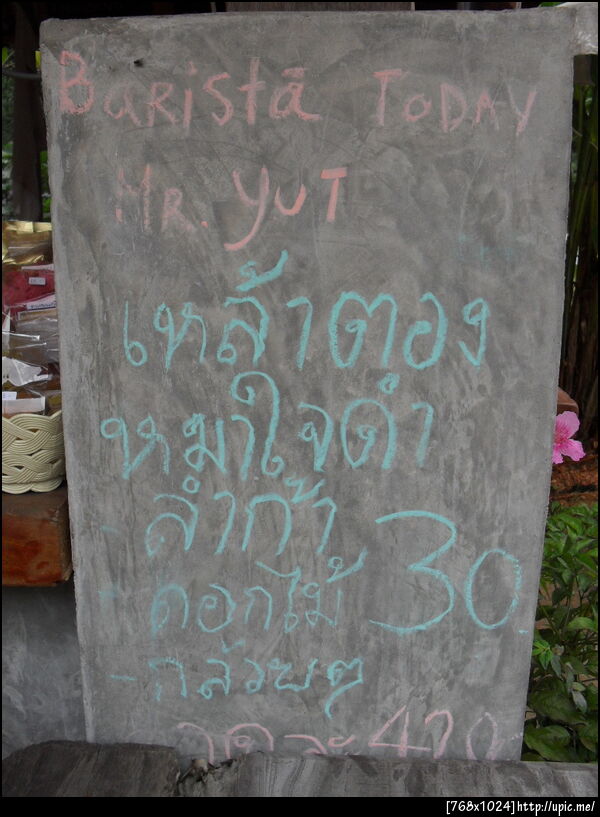 Barista TODAY
MR. YUT
เหล้าตอง
หมาใจดำ
- ลำก้ำ
- ดอกไม้ 30
- กล้วยๆ
ขวดละ 470
[768x1024]http://upic.me/